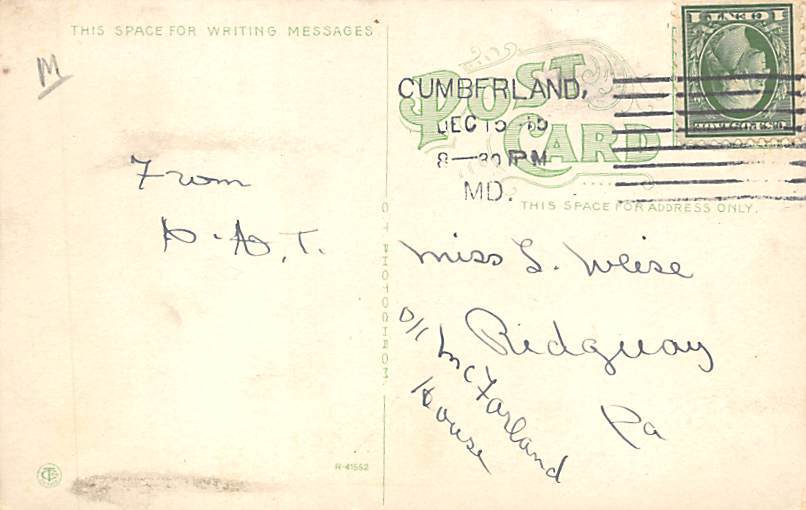 THIS SPACE FOR WRITING MESSAGES
M
From
A.T.
POST CARD
CUMBERLAND,
DEC 15
8—30 PM
MD.
THIS SPACE FOR ADDRESS ONLY.
Miss L. Weise
Ridguay
Pa
McFarland
House
R-41552